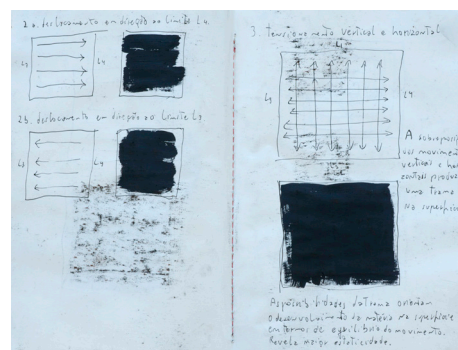 2a. deslocamento em direção ao limite L4.
L3
L4
2b. deslocamento em direção ao limite L3.
L3
L4
3. tensionamento vertical e horizontal
L3
L4
A sobreposi
dos movimen
verticais e ho
zontais produz
uma trama
na superfíci
As possibilidades da trama orientam
o desenvolvimento da matéria na superfície
em termos de equilíbrio do movimento.
Revela maior estaticidade.